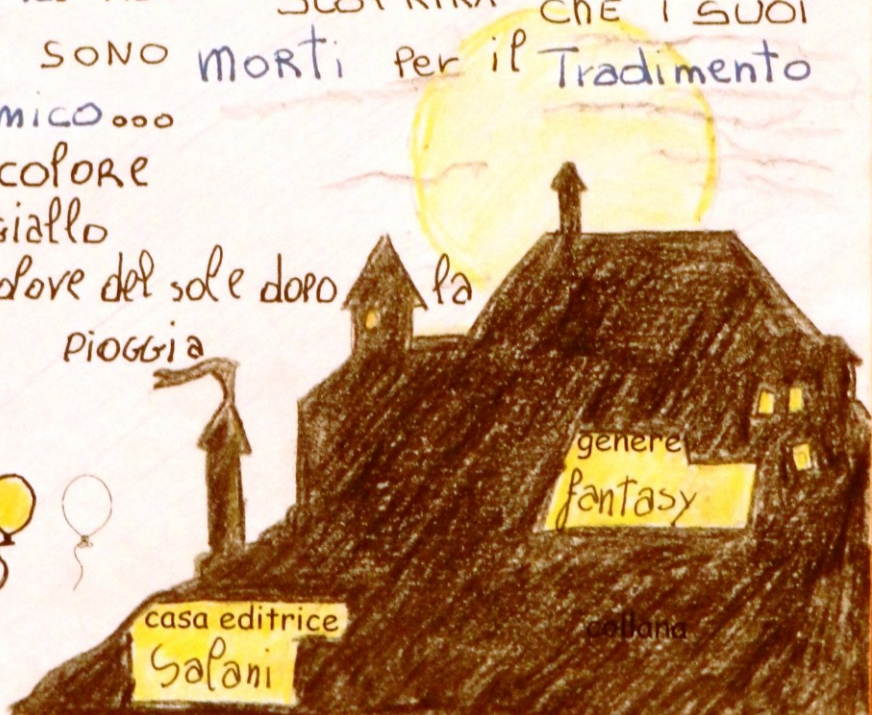 SCOPRIRÀ CHE I SUOI
SONO MORTi PER il Tradimento
colore
giallo
del sole dopo la
PiOGGia
genere
fantasy
casa editrice
Salani
collana